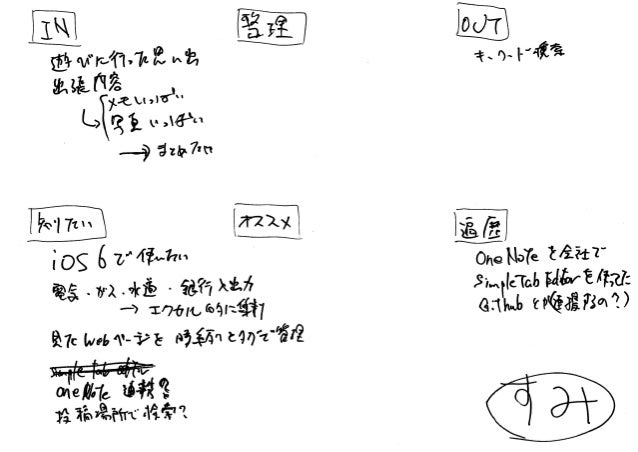 IN
遊びに行った思い出
出張内容
メモいっぱい
写真いっぱい
→ まとめたい
管理
OUT
キーワード検索
知りたい
iOS6で使いたい
電気・ガス・水道・銀行入出力
→ エクセル的に集計
見たWebページを 勝手にタグで管理
simple tab editor
OneNote 連携?
投稿場所で検索?
オススメ
遍歴
OneNoteを会社で
SimpleTabEditorを使ってた
Githubと(連携するの?)
すみ